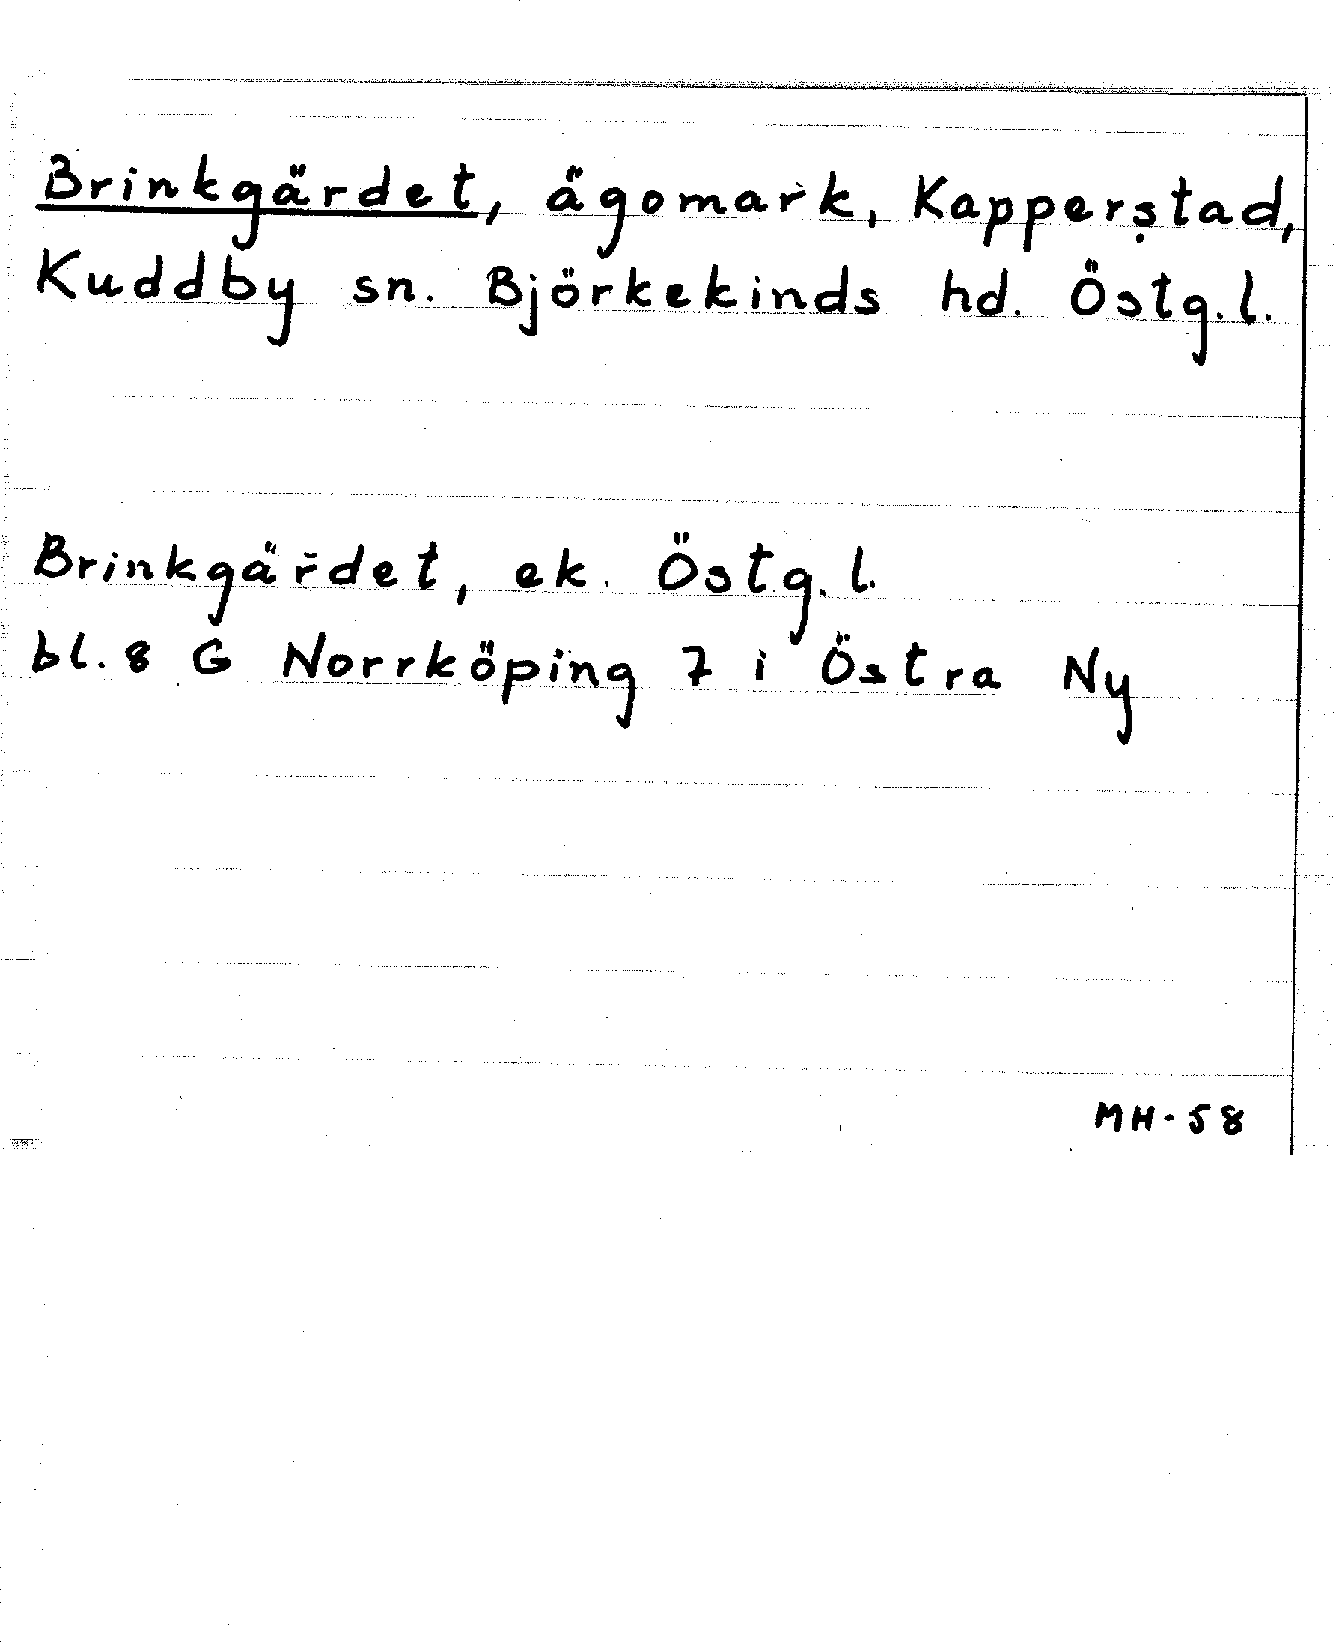 Brinkgärdet, ägomark, Kapperstad,
Kuddby sn. Björkekinds hd. Östg.l.
Brinkgärdet, ek. Östg.l.
bl. 8 G Norrköping 7 i Östra Ny
MH-58